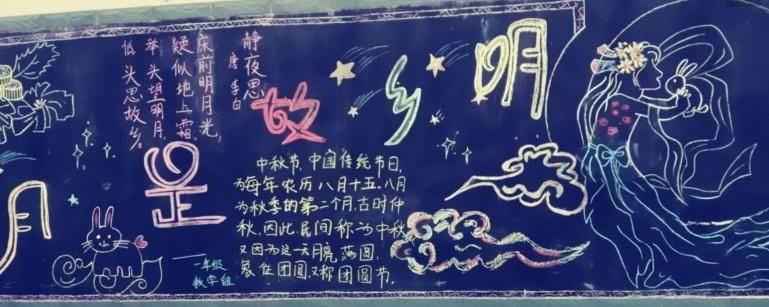 静夜思
唐 李白
床前明月光，
疑似地上霜。
举头望明月，
低头思故乡。
月是故乡明
中秋节，中国传统节日，
为每年农历八月十五，八月
为秋季的第二个月，古时仲
秋，因此民间称为中秋，
又因为这一天月亮满圆，
象征团圆，又称团圆节。
一年级
数学组